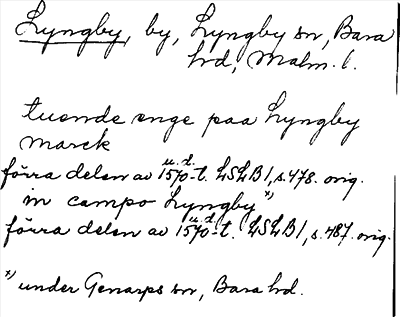 Lyngby, by, Lyngby sn, Bara
hd, Malm. l.
tuende enge paa Lyngby
marck
förra delen av 1570-t. u.d. LSLB1, s. 478. orig.
in campo Lyngby x)
förra delen av 1570-t. u.d. LSLB1, s. 487. orig.
x) under Genarps sn, Bara hd.